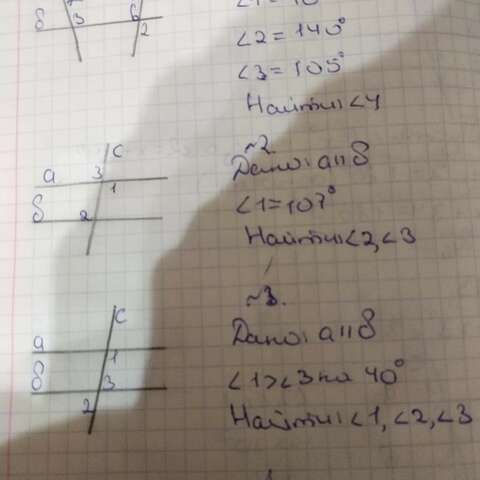 б 3 6
2
∠2 = 140°
∠3 = 105°
Найти: ∠4
~2
Дано: a ıı б
∠1 = 107°
Найти: ∠2, ∠3
c
a 3
1
б 2
~3.
Дано: a ıı б
∠1 > ∠3 на 40°
Найти: ∠1, ∠2, ∠3
c
a
1
б 3
2